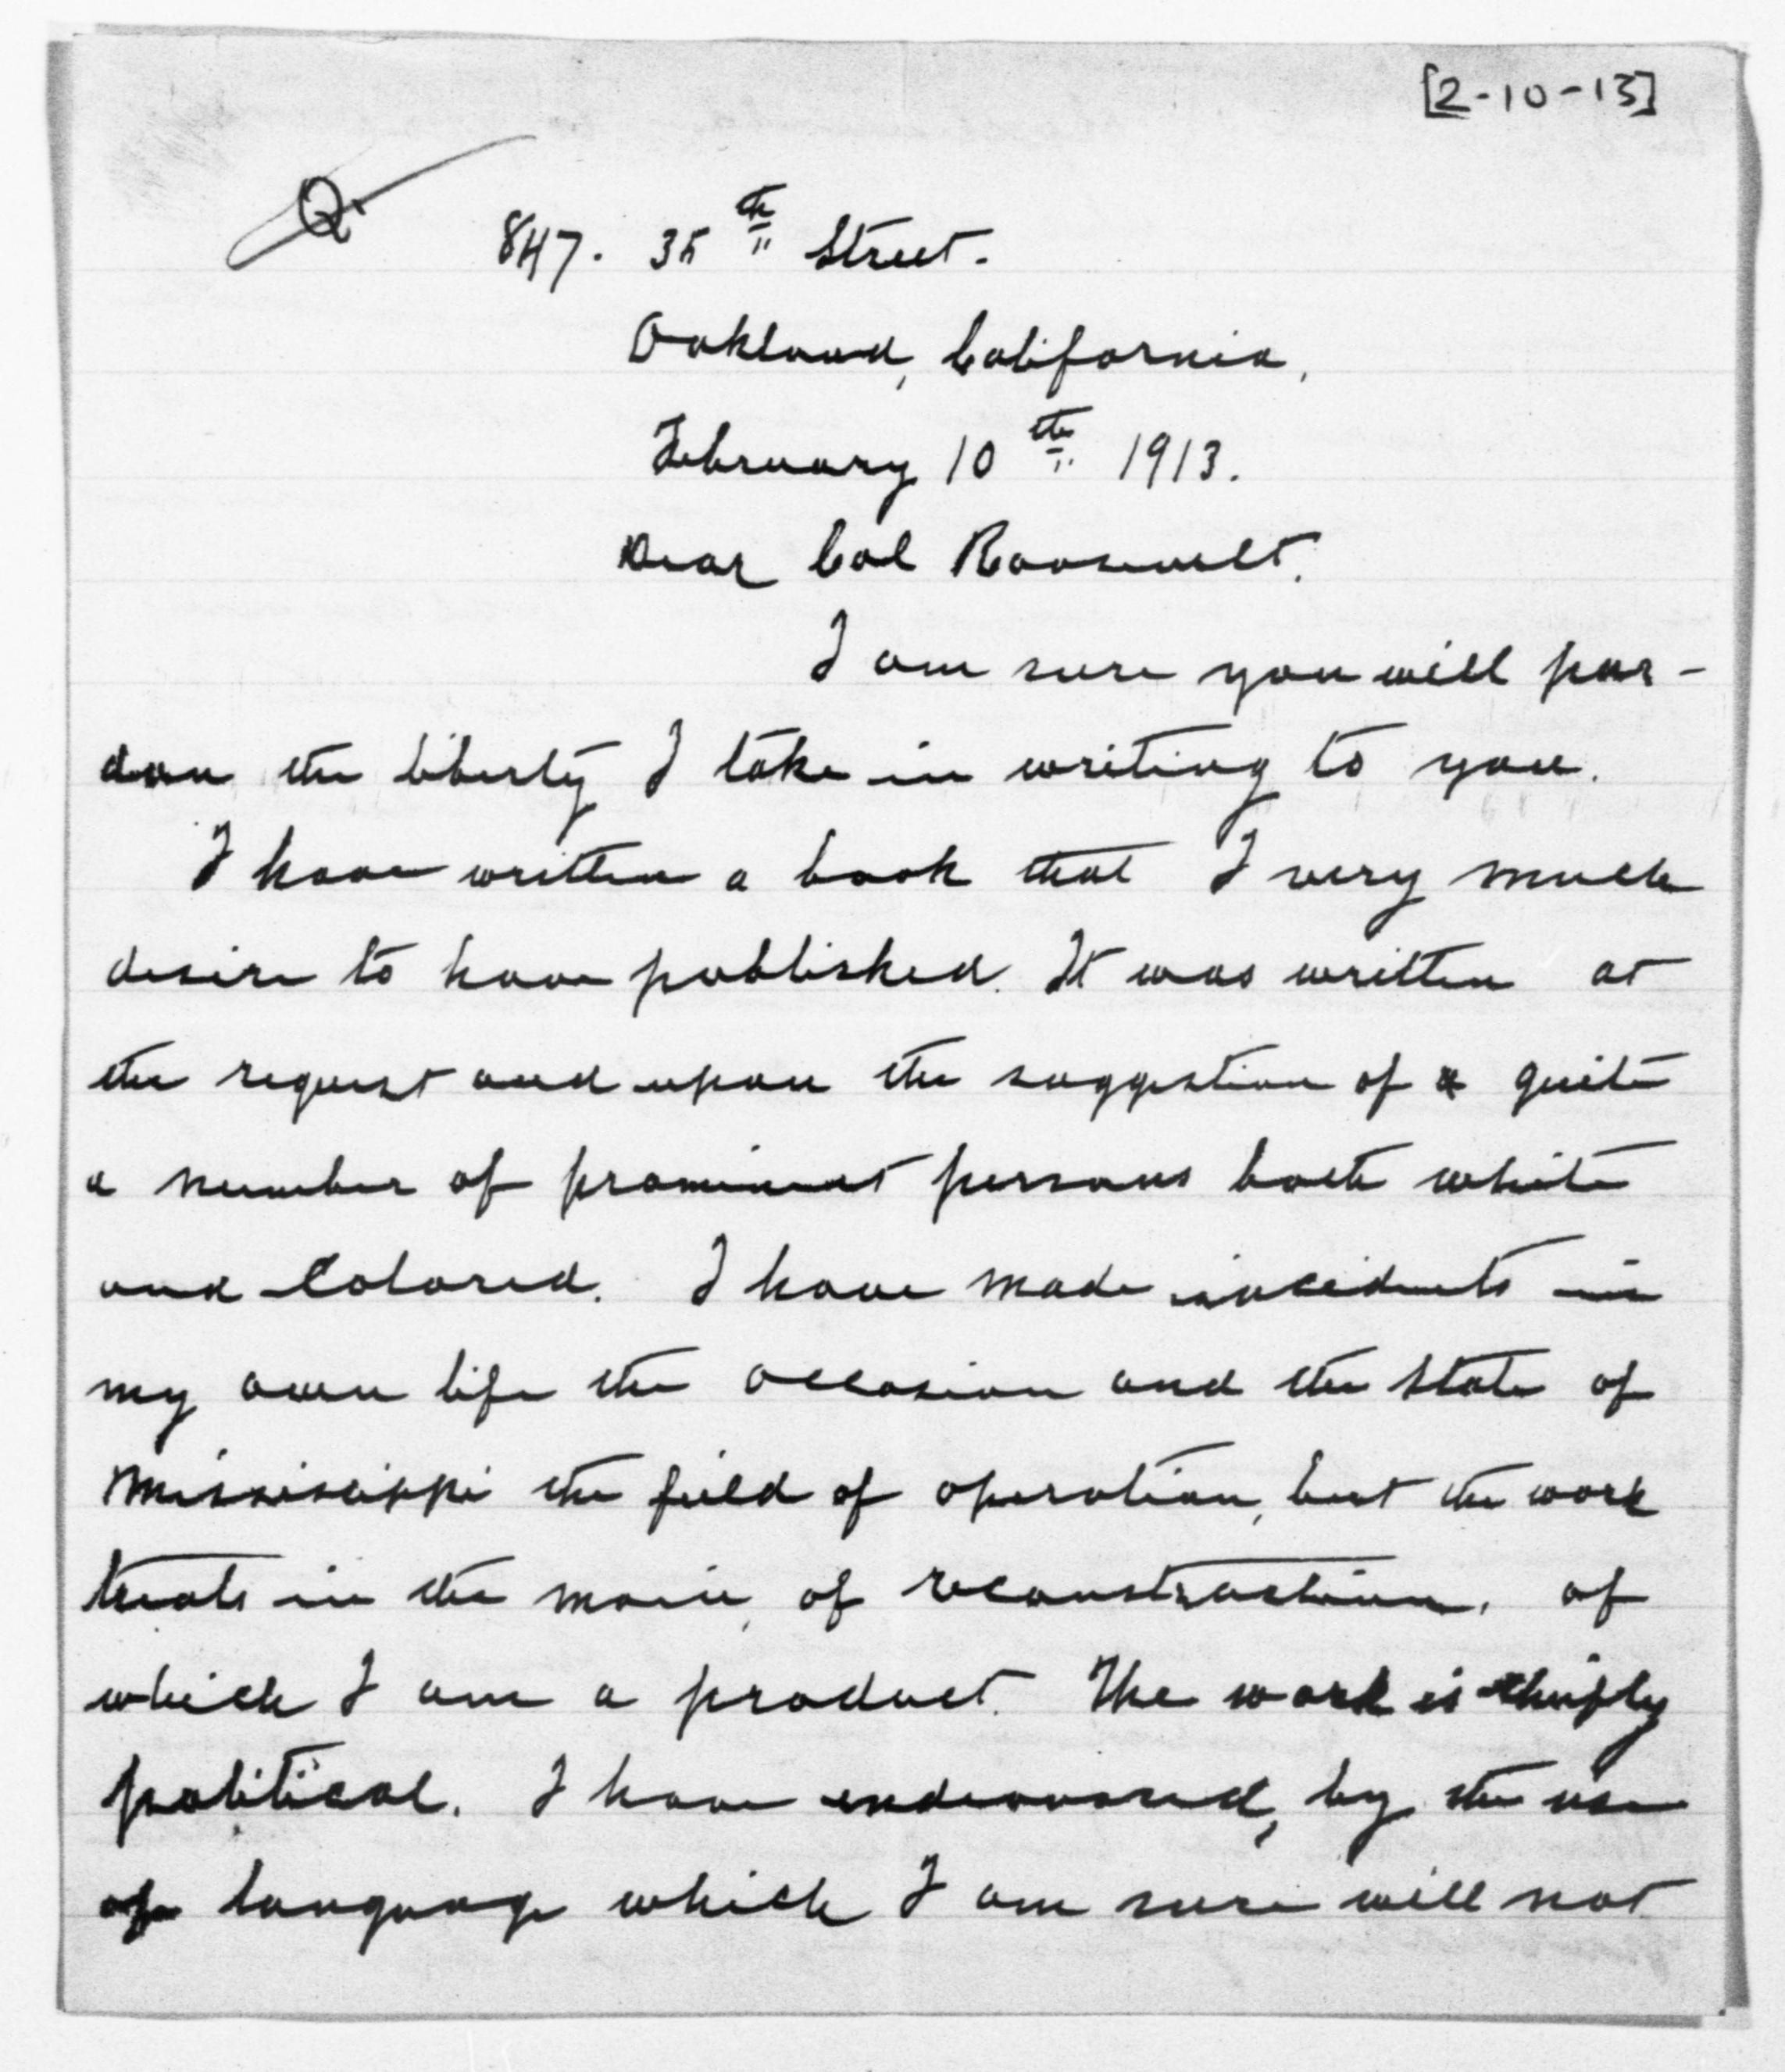 [2-10-13]
Q.
847. 35th Street.
Oakland, California,
February 10th 1913.
Dear Col Roosevelt.
I am sure you will par-
don the liberty I take in writing to you.
I have written a book that I very much
desire to have published. It was written at
the request and upon the suggestion of a quite
a number of prominent persons both white
and Colored. I have made incidents in
my own life the occasion and the State of
Mississippi the field of operation, but the work
treats in the main, of reconstruction, of
which I am a product. The work is chiefly
political. I have endeavored, by the use
of language which I am sure will not